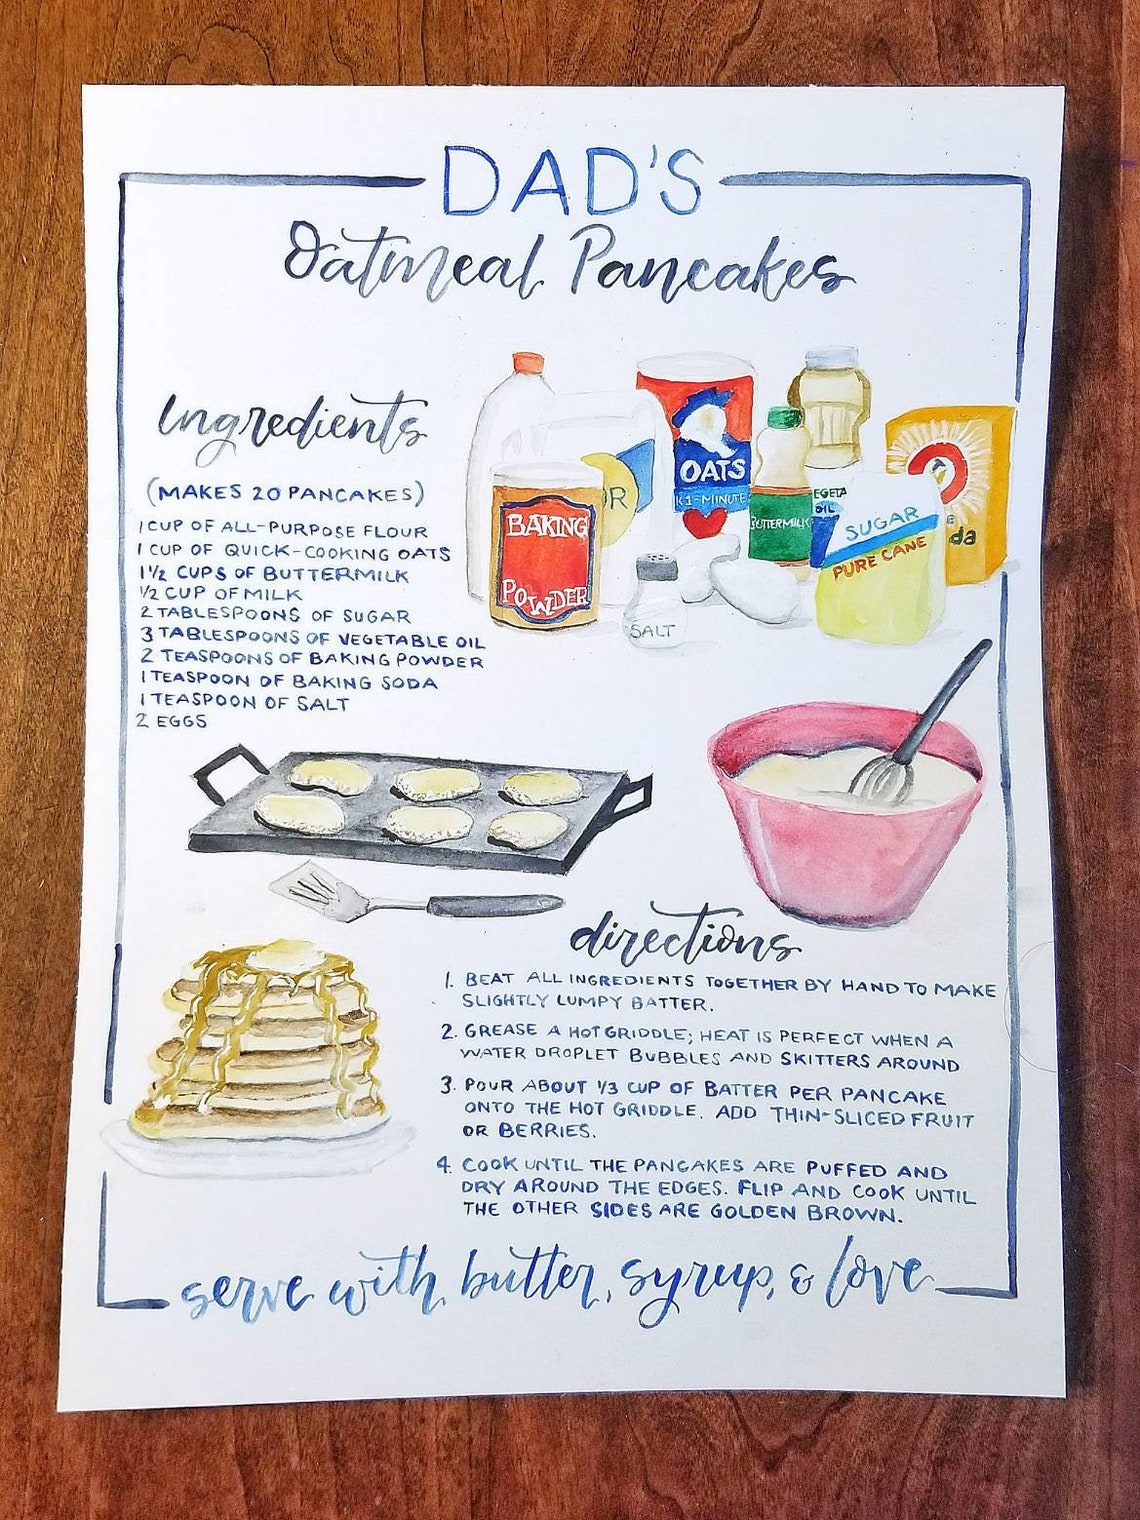 DAD'S
Oatmeal Pancakes
Ingredients
(MAKES 20 PANCAKES)
1 CUP OF ALL-PURPOSE FLOUR
1 CUP OF QUICK-COOKING OATS
1 1/2 CUPS OF BUTTERMILK
1/2 CUP OF MILK
2 TABLESPOONS OF SUGAR
3 TABLESPOONS OF VEGETABLE OIL
2 TEASPOONS OF BAKING POWDER
1 TEASPOON OF BAKING SODA
1 TEASPOON OF SALT
2 EGGS
BAKING
POWDER
OR
OATS
1-MINUTE
BUTTERMILK
SALT
VEGETA
OIL
SUGAR
PURE CANE
da
directions
1. BEAT ALL INGREDIENTS TOGETHER BY HAND TO MAKE
SLIGHTLY LUMPY BATTER.
2. GREASE A HOT GRIDDLE; HEAT IS PERFECT WHEN A
WATER DROPLET BUBBLES AND SKITTERS AROUND
3. POUR ABOUT 1/3 CUP OF BATTER PER PANCAKE
ONTO THE HOT GRIDDLE. ADD THIN-SLICED FRUIT
OR BERRIES.
4. COOK UNTIL THE PANCAKES ARE PUFFED AND
DRY AROUND THE EDGES. FLIP AND COOK UNTIL
THE OTHER SIDES ARE GOLDEN BROWN.
serve with butter, syrup, & love